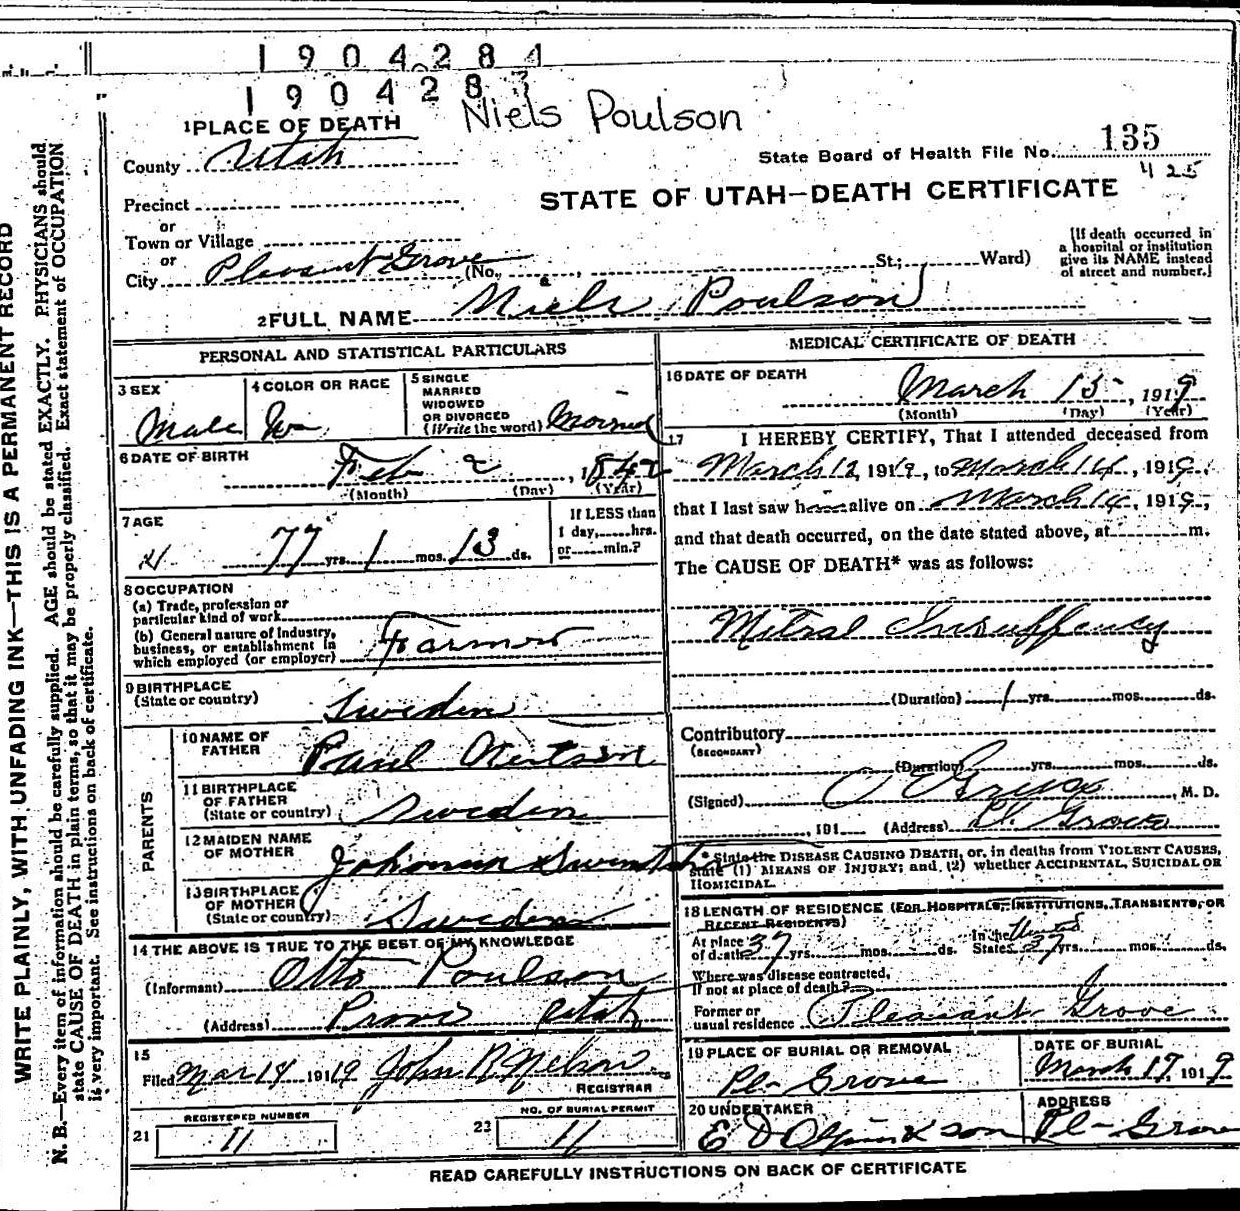 1904284
190428
Niels Poulson
1 PLACE OF DEATH
County Utah
State Board of Health File No. 135
425
STATE OF UTAH—DEATH CERTIFICATE
Precinct
or
Town or Village
or
City Pleasant Grove (No. , St.; Ward)
[If death occurred in
a hospital or institution
give its NAME instead
of street and number.]
2 FULL NAME Niels Poulson
PERSONAL AND STATISTICAL PARTICULARS
3 SEX
Male
4 COLOR OR RACE
W
5 SINGLE
MARRIED
WIDOWED
OR DIVORCED
(Write the word)
6 DATE OF BIRTH
Feb 2, 1842
(Month) (Day) (Year)
7 AGE
77 yrs. 1 mos. 13 ds.
If LESS than
1 day, hrs.
or min.?
8 OCCUPATION
(a) Trade, profession or
particular kind of work
(b) General nature of industry,
business, or establishment in
which employed (or employer) Farmer
9 BIRTHPLACE
(State or country) Sweden
PARENTS
10 NAME OF
FATHER Paul
11 BIRTHPLACE
OF FATHER
(State or country) Sweden
12 MAIDEN NAME
OF MOTHER
13 BIRTHPLACE
OF MOTHER
(State or country) Sweden
14 THE ABOVE IS TRUE TO THE BEST OF MY KNOWLEDGE
(Informant) Otto Poulson
(Address) Provo Utah
15
Filed Mar 14 1919 John R Nelson
REGISTRAR
REGISTERED NUMBER
21 11
NO. OF BURIAL PERMIT
22 11
MEDICAL CERTIFICATE OF DEATH
16 DATE OF DEATH
March 15, 1919
(Month) (Day) (Year)
17 I HEREBY CERTIFY, That I attended deceased from
March 12, 1919, to March 14, 1919,
that I last saw h alive on March 14, 1919,
and that death occurred, on the date stated above, at m.
The CAUSE OF DEATH* was as follows:
Mitral Insuffency
(Duration) 1 yrs. mos. ds.
Contributory
(SECONDARY)
(Duration) yrs. mos. ds.
(Signed) , M. D.
, 191 (Address) Pl. Grove
* State the DISEASE CAUSING DEATH, or, in deaths from VIOLENT CAUSES,
state (1) MEANS OF INJURY; and (2) whether ACCIDENTAL, SUICIDAL OR
HOMICIDAL.
18 LENGTH OF RESIDENCE (FOR HOSPITALS, INSTITUTIONS, TRANSIENTS, OR
RECENT RESIDENTS)
At place
of death 37 yrs. mos. ds. In the United
States 37 yrs. mos. ds.
Where was disease contracted,
If not at place of death?
Former or
usual residence Pleasant Grove
19 PLACE OF BURIAL OR REMOVAL
Pl- Grove
DATE OF BURIAL
March 17, 1919
20 UNDERTAKER
ADDRESS
Pl- Grove
READ CAREFULLY INSTRUCTIONS ON BACK OF CERTIFICATE
WRITE PLAINLY, WITH UNFADING INK—THIS IS A PERMANENT RECORD
N. B.—Every item of information should be carefully supplied. AGE should be stated EXACTLY. PHYSICIANS should
state CAUSE OF DEATH in plain terms, so that it may be properly classified. Exact statement of OCCUPATION
is very important. See instructions on back of certificate.